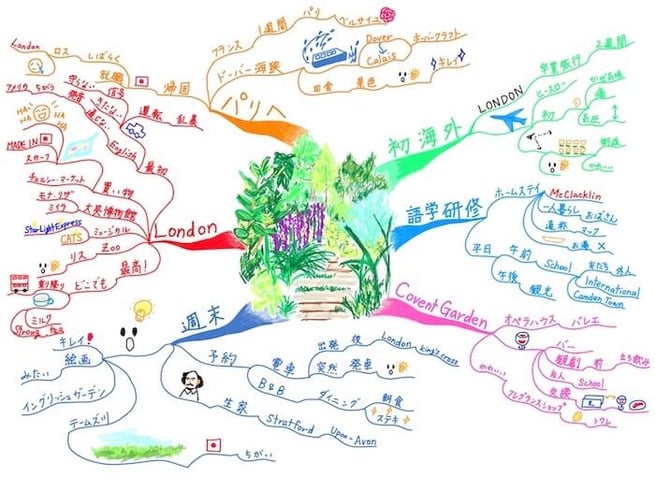 London
ロス
しばらく
就職
帰国
フランス
1週間
パリ
ベルサイユ
ドーバー海狭
Dover
Calais
ホーバークラフト
田舎
景色
キレイ
パリへ
初海外
LONDON
卒業旅行
2週間
ヒースロー
初
語学研修
ホームステイ
McClacklin
一人暮らし
おばさん
通称
マック
お湯
平日
午前
School
友だち
外人
International
Camden Town
午後
観光
Covent Garden
オペラハウス
バレエ
バー
観劇
前
立ち飲み
友人
School
交換
かわいい
フレグランスショップ
トワレ
週末
予約
電車
出発
後
London
King's cross
突然
発車
B&B
ダイニング
朝食
ステキ
生家
Stratford
Upon-Avon
キレイ
絵画
みたい
イングリッシュガーデン
テームズ川
ちがい
London
最初
English
通じない
発音
アメリカ
ちがう
運転
乱暴
信号
守らない
きたない
HA
HA
HA
HA
買い物
MADE IN
スカーフ
チェルシー・マーケット
大英博物館
モナ・リザ
ミイラ
ミュージカル
StarLight Express
CATS
Zoo
リス
最高!
どこでも
乗り降り
ミルク
Strong tea